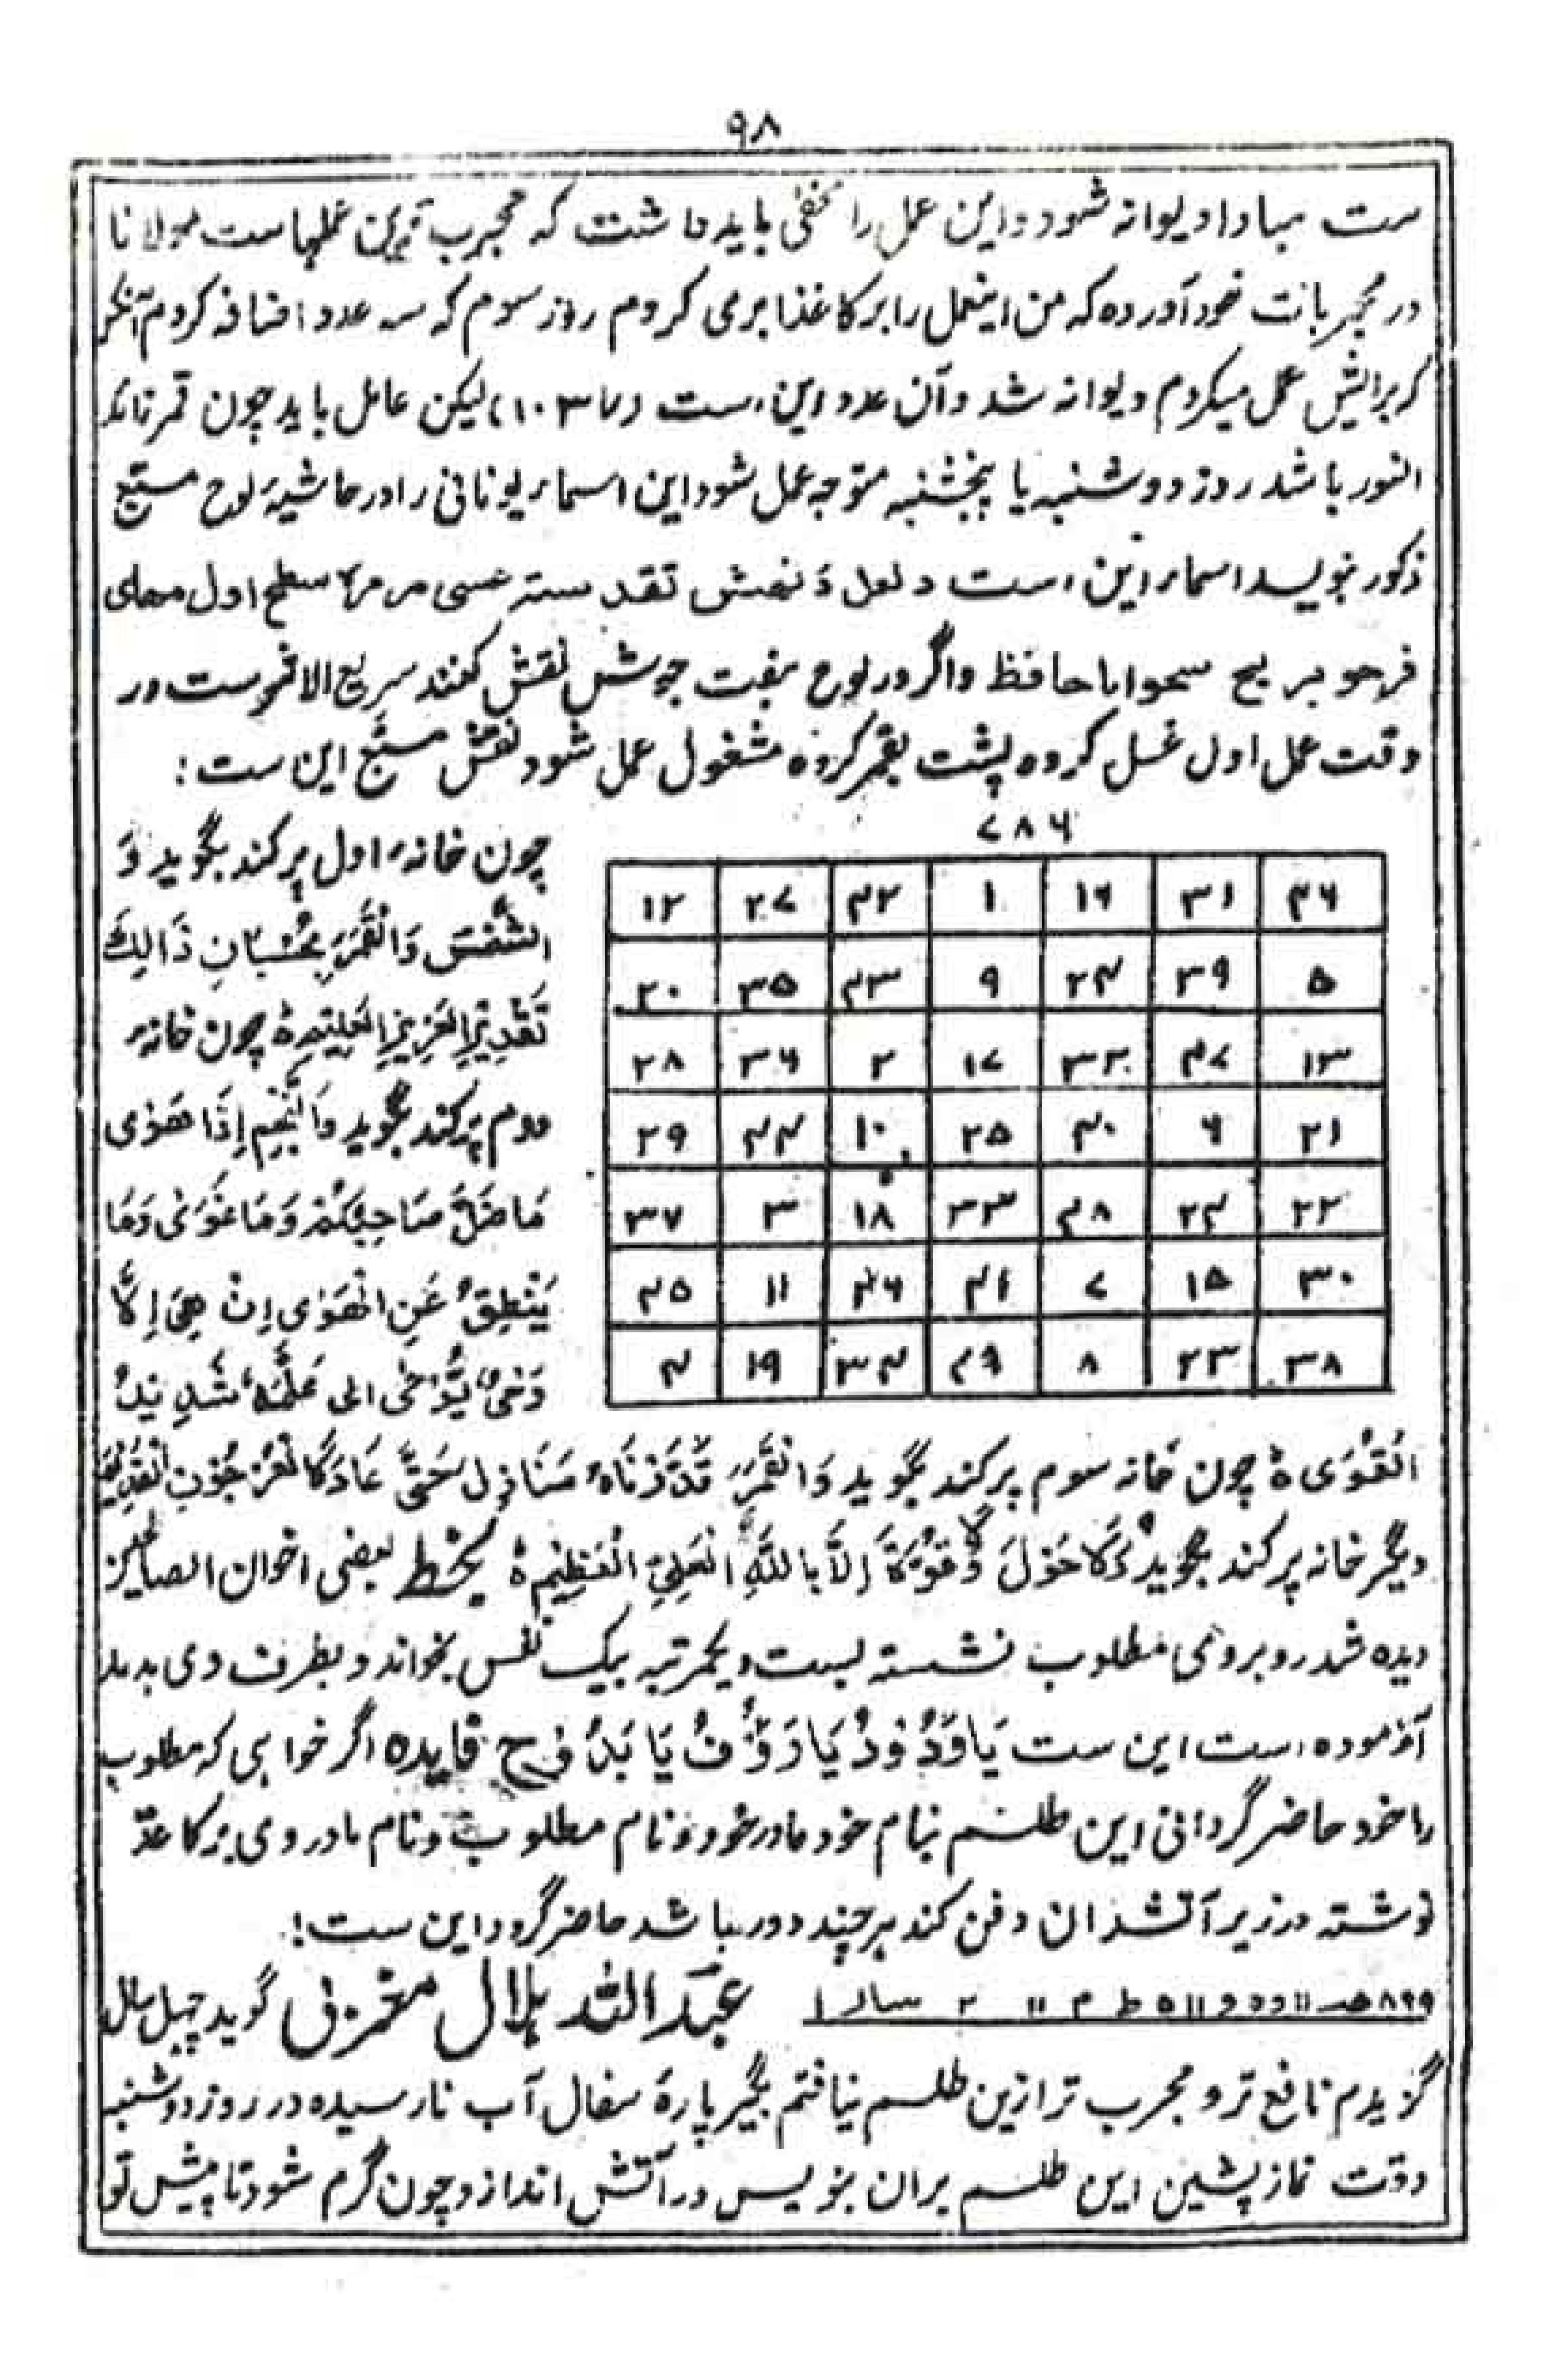 ۹۸
ست مبادا دیوانه شود و این عمل را مخفی باید داشت که مجرب ترین عملهاست مولانا
در مجربات خود آورده که من اینعمل را بر کاغذ بر می کردم روز سوم که سه عدد اضافه کردم آنکس
کہ برایش عمل میکردم دیوانه شد و آن عدد این ست لیکن عامل باید چون قمر زائد
النور باشد روز دوشنبه یا پنجشنبه متوجه عمل شود این اسماء یونانی را در حاشیهٔ لوح مسبع
مذکور بنویسد اسماء این است سطح اول
حافظ و اگر در لوح هفت جوش نقش کنند سریع الاثرست در
وقت عمل اول غسل کرده پشت بقمر کرده مشغول عمل شود نقش مسبع این ست:
۷۸۶
۱۲ ۲۷ ۴۲ ۱ ۱۶ ۳۱ ۴۶
۲۰ ۳۵ ۴۳ ۹ ۲۴ ۳۹ ۵
۲۸ ۳۶ ۲ ۱۷ ۳۲ ۴۷ ۱۳
۲۹ ۴۴ ۱۰ ۲۵ ۴۰ ۶ ۲۱
۳۷ ۳ ۱۸ ۳۳ ۴۸ ۲۴ ۲۲
۴۵ ۱۱ ۲۶ ۴۱ ۷ ۱۵ ۳۰
۴ ۱۹ ۳۴ ۴۹ ۸ ۲۳ ۳۸
چون خانهٔ اول پر کند بگوید وَ
الشَّمْسَ وَالْقَمَرَ بِحُسْبَانٍ ذَالِكَ
تَقْدِيْرُ الْعَزِيْزِ الْعَلِيْمِ ہ چون خانهٔ
دوم پر کند بگوید وَالنَّجْمِ إِذَا هَوٰى
مَا ضَلَّ صَاحِبُكُمْ وَمَا غَوٰى وَمَا
يَنْطِقُ عَنِ الْهَوٰى اِنْ هِيَ اِلَّا
وَحْىٌ يُّوْحٰى الى عَلَّمَهٗ شَدِيْدُ
الْقُوٰى ہ چون خانه سوم پر کند بگوید وَالْقَمَرَ قَدَّرْنَاهُ مَنَازِلَ حَتّٰى عَادَ كَالْعُرْجُوْنِ الْقَدِيْمِ
دیگر خانه پر کند بگوید وَلَا حَوْلَ وَلَا قُوَّةَ اِلَّا بِاللّٰهِ الْعَلِيِّ الْعَظِيْمِ ہ بخط بعضی اخوان الصفا نیز
دیده شد روبروئی مطلوب نشسته بست و یکمرتبه بیک نفس بخواند و بطرف وی بدمد
آزموده است این ست يَا وَدُوْدُ يَا رَؤُفُ يَا بَدُّوْحُ فایده اگر خواهی که مطلوب
را خود حاضر گردانی این طلسم بنام خود مادر خود و نام مطلوب و نام مادر وی بر کاغذ
نوشته در زیر آتشدان دفن کند هر چند دور باشد حاضر گردد این ست:
عبد الله ہلال مخزونی گوید چهل سال
گزیدم نافع تر و مجرب تر ازین طلسم نیافتم بگیر پارهٔ سفال آب نارسیده در روز دوشنبه
وقت نماز پشین این طلسم بران بنویس در آتش انداز و چون گرم شود تا پیش تو